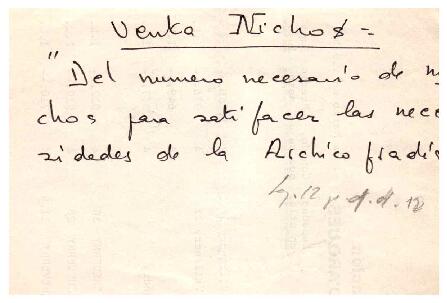 Venta Nichos =
"Del numero necesario de ni
chos para satisfacer las nece
sidades de la Archicofradia